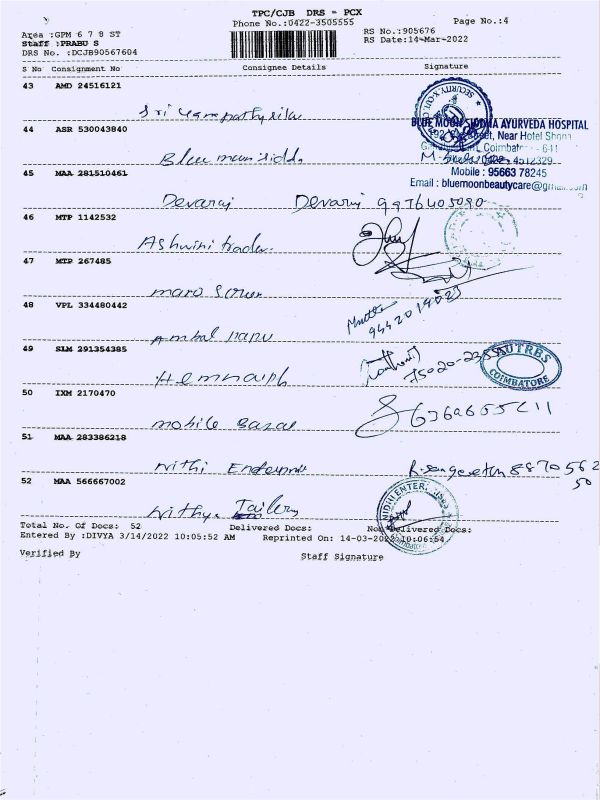 TPC/CJB DRS - PCX
Phone No.:0422-3505555 Page No.:4
Area :GPM 6 7 8 ST
RS No.:905676
Staff :PRABU S
RS Date:14-Mar-2022
DRS No. :DCJB90567604
S No Consignment No Consignee Details Signature
43 AMD 24516121
Sri
44 ASR 530043840
BLUE MOON SIDDHA AYURVEDA HOSPITAL
Street, Near Hotel
Coimbat - 641
4512329
Mobile : 95663 78245
Email : bluemoonbeautycare@gmail.com
Blue moon siddha
45 MAA 281510461
Devaraj Devaraj 9976405090
46 MTP 1142532
Ashwini trader
47 MTP 267485
48 VPL 334480442
Muttu
9442019023
Ambal
49 SLM 291354385
75020-
COIMBATORE
50 IXM 2170470
Mobile Bazar
51 MAA 283386218
Nithi Enterprise
R. Sangeetha 8870562
50
52 MAA 566667002
NIDHI ENTER
Nithya Tailors
Total No. Of Docs: 52 Delivered Docs: Not Delivered Docs:
Entered By :DIVYA 3/14/2022 10:05:52 AM Reprinted On: 14-03-2022 10:06:54
Verified By Staff Signature